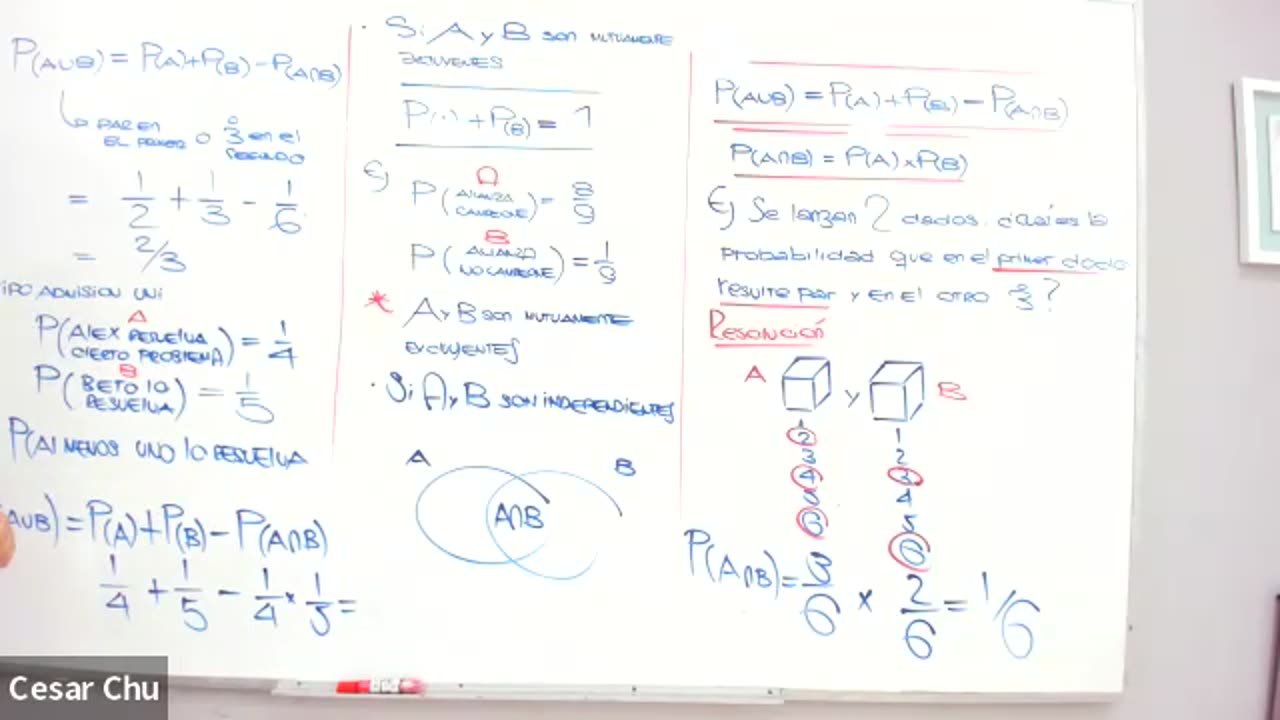 P(A∪B) = P(A)+P(B) - P(A∩B)
PAR EN EL PRIMER O 3̊ en el SEGUNDO
= 1/2 + 1/3 - 1/6
= 2/3
TIPO ADMISION UNI
A
P(ALEX RESUELVA CIERTO PROBLEMA) = 1/4
B
P(BETO LO RESUELVA) = 1/5
P(AL MENOS UNO LO RESUELVA
(A∪B) = P(A)+P(B) - P(A∩B)
1/4 + 1/5 - 1/4 × 1/5 =
· Si A y B son MUTUAMENTE
+ P(B) = 1
Ej
A
P(ALIANZA CAMPEONE) = 8/9
B
P(ALIANZA NO CAMPEONE) = 1/9
* A y B son MUTUAMENTE
EXCLUYENTES
· Si A y B SON INDEPENDIENTES
A B
A∩B
P(A∪B) = P(A)+P(B) - P(A∩B)
P(A∩B) = P(A) x P(B)
Ej Se lanzan 2 dados. cuál es la
Probabilidad que en el primer dado
resulte par y en el otro 3̊?
Resolución
A y B
1 1
2 2
3 3
4 4
5 5
6 6
P(A∩B) = 3/6 x 2/6 = 1/6
Cesar Chu